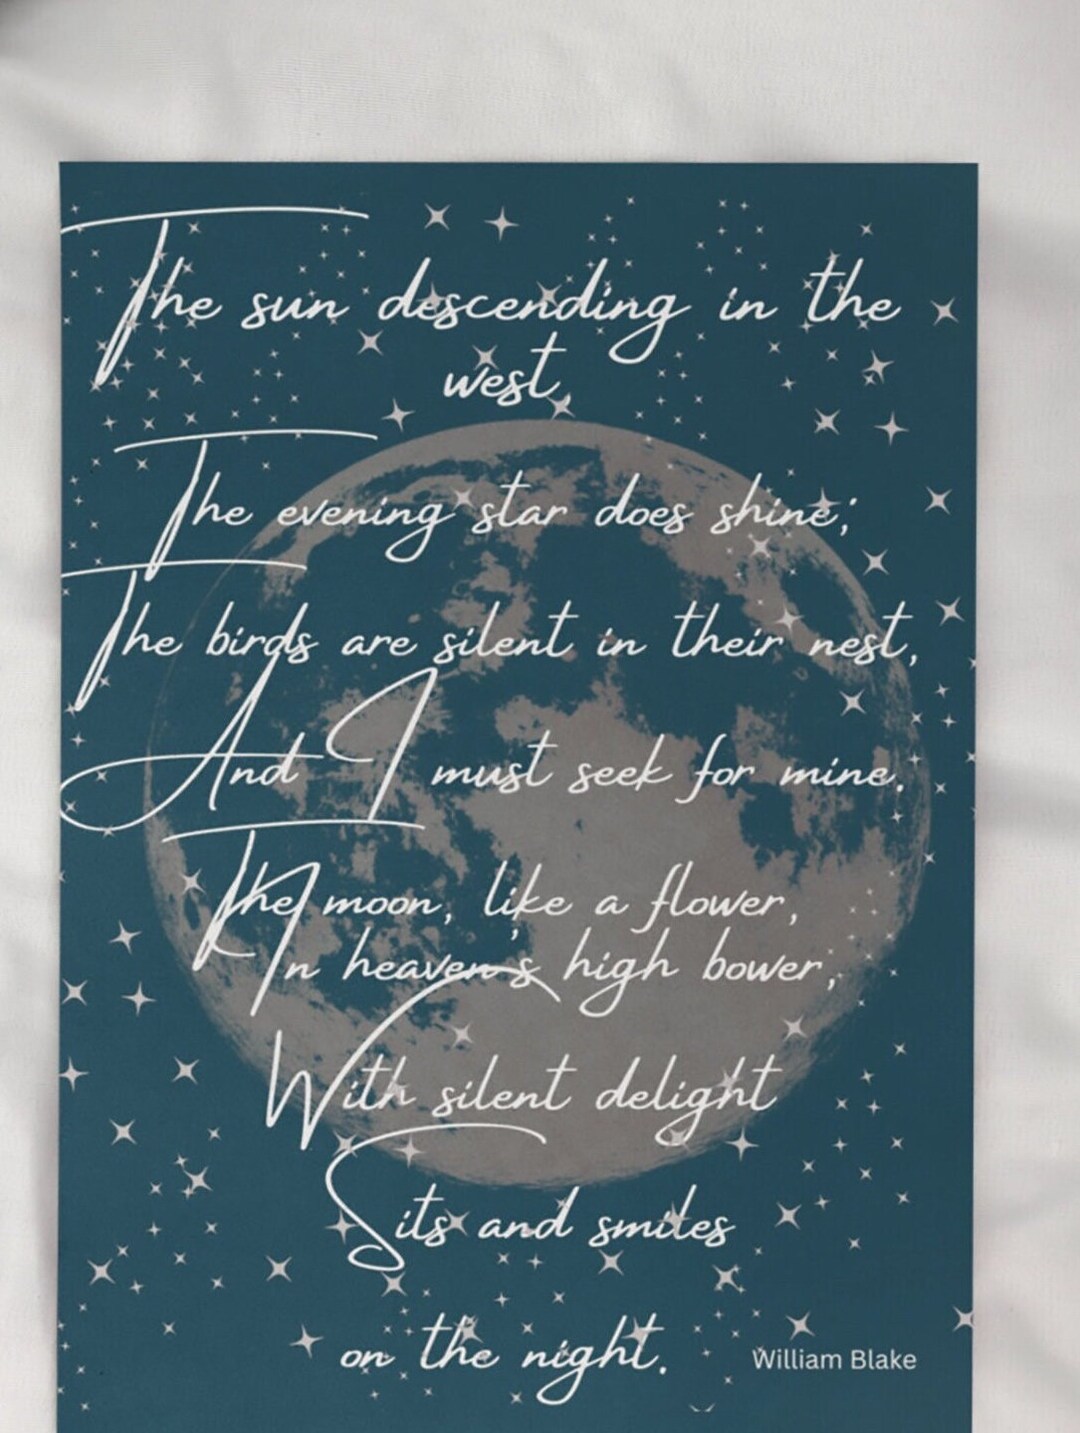 The sun descending in the
west,
The evening star does shine;
The birds are silent in their nest,
And I must seek for mine.
The moon, like a flower,
In heaven's high bower,
With silent delight
Sits and smiles
on the night.
William Blake